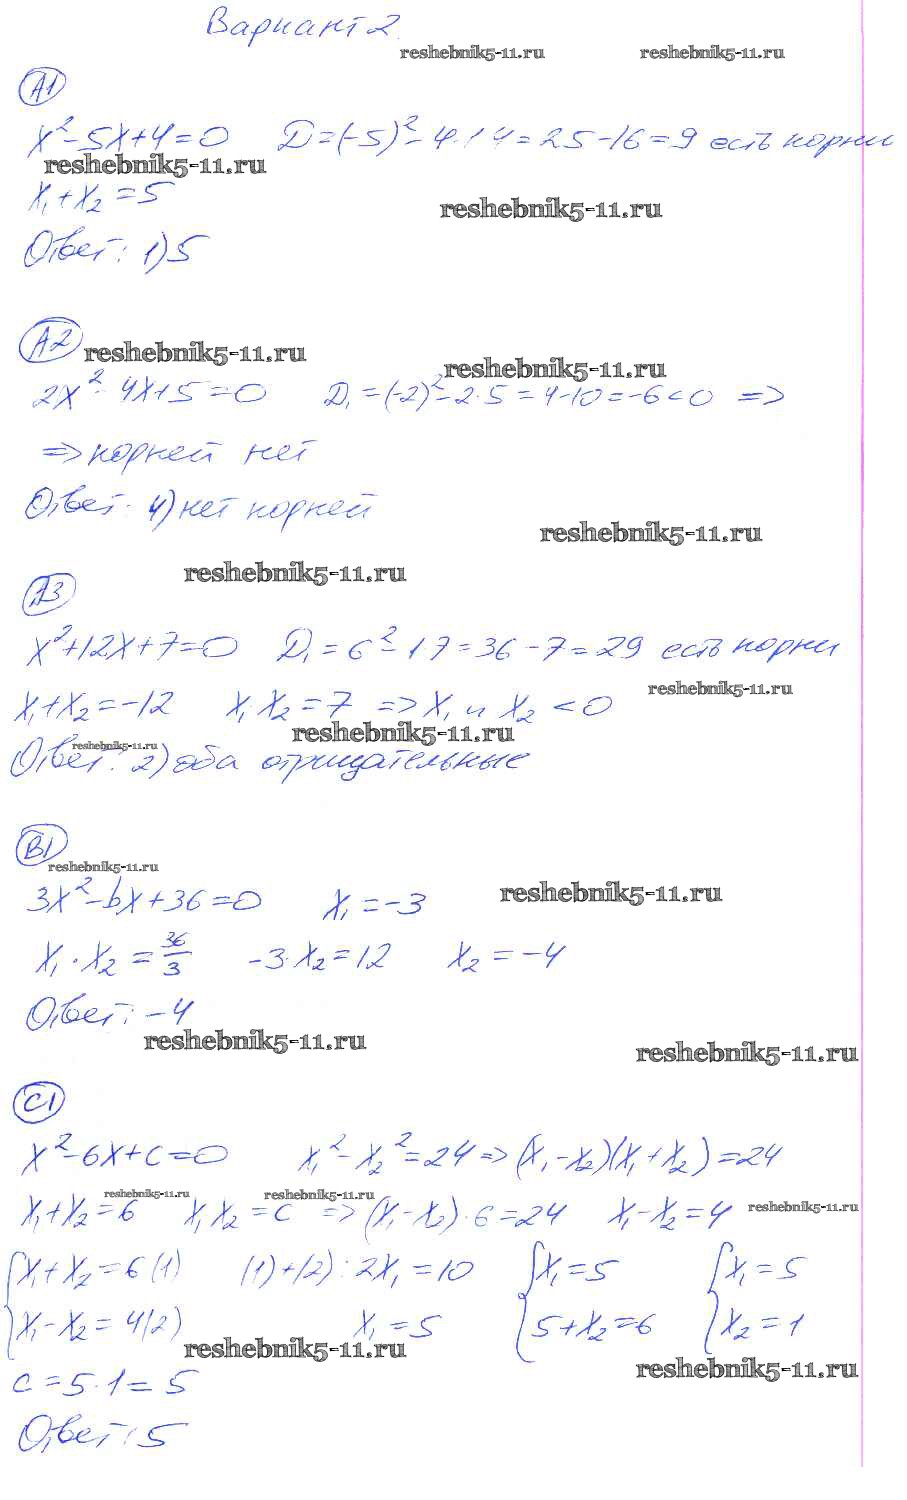 Вариант 2.
reshebnik5-11.ru reshebnik5-11.ru
А1
x² - 5x + 4 = 0 D = (-5)² - 4·1·4 = 25 - 16 = 9 есть корни
reshebnik5-11.ru
x₁ + x₂ = 5
reshebnik5-11.ru
Ответ: 1) 5
А2
reshebnik5-11.ru
reshebnik5-11.ru
2x² - 4x + 5 = 0 D₁ = (-2)² - 2·5 = 4 - 10 = -6 < 0 =>
=> корней нет
Ответ: 4) нет корней
reshebnik5-11.ru
reshebnik5-11.ru
А3
x² + 12x + 7 = 0 D₁ = 6² - 1·7 = 36 - 7 = 29 есть корни
reshebnik5-11.ru
x₁ + x₂ = -12 x₁x₂ = 7 => x₁ и x₂ < 0
reshebnik5-11.ru
reshebnik5-11.ru
Ответ: 2) оба отрицательные
В1
reshebnik5-11.ru
reshebnik5-11.ru
3x² - bx + 36 = 0 x₁ = -3
x₁ · x₂ = 36/3 -3·x₂ = 12 x₂ = -4
Ответ: -4
reshebnik5-11.ru
reshebnik5-11.ru
С1
x² - 6x + c = 0 x₁² - x₂² = 24 => (x₁ - x₂)(x₁ + x₂) = 24
reshebnik5-11.ru reshebnik5-11.ru reshebnik5-11.ru
x₁ + x₂ = 6 x₁x₂ = c => (x₁ - x₂)·6 = 24 x₁ - x₂ = 4
{x₁ + x₂ = 6 (1) (1)+(2): 2x₁ = 10 {x₁ = 5 {x₁ = 5
x₁ - x₂ = 4 (2) x₁ = 5 5 + x₂ = 6 x₂ = 1
reshebnik5-11.ru
reshebnik5-11.ru
c = 5·1 = 5
Ответ: 5